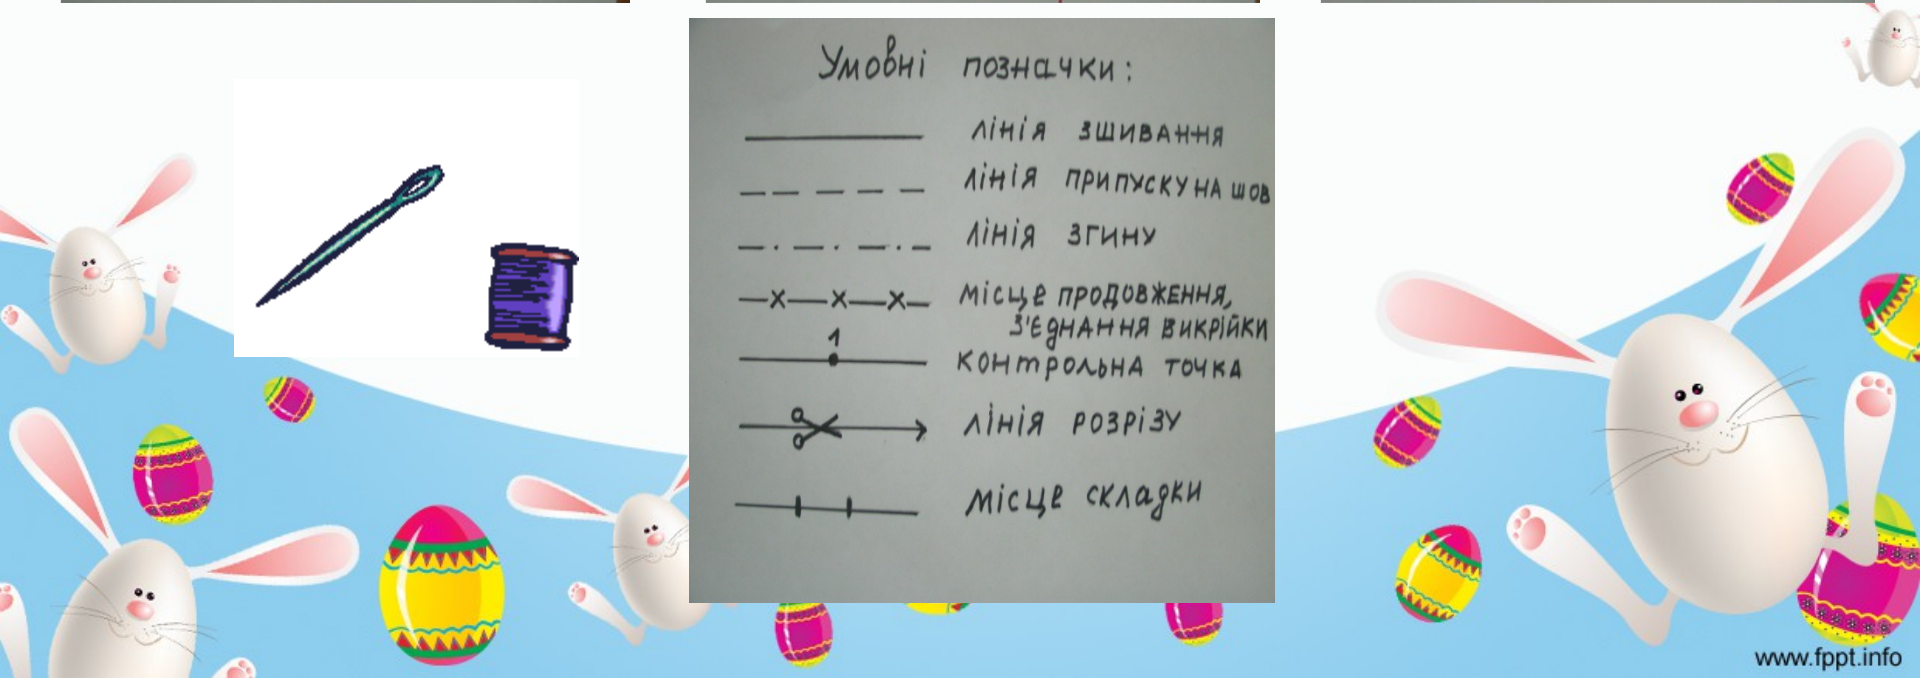 Умовні позначки:
лінія зшивання
лінія припуску на шов
лінія згину
місце продовження,
з'єднання викрійки
1
контрольна точка
лінія розрізу
місце складки
www.fppt.info